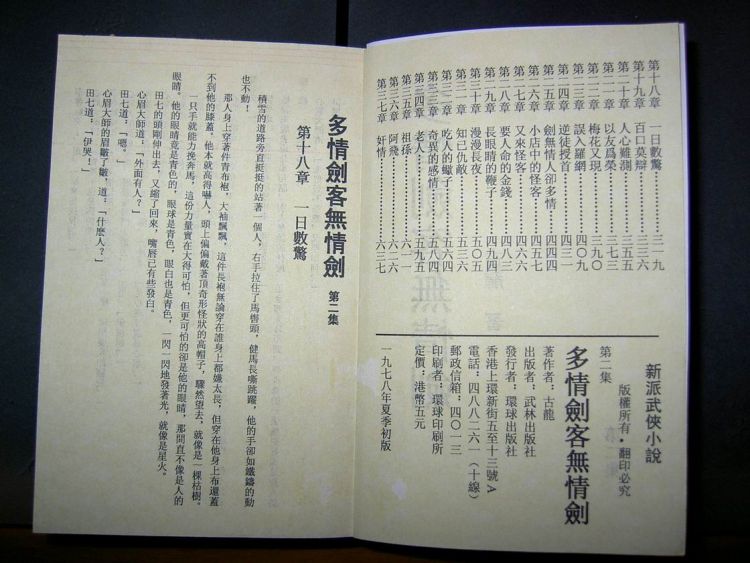 第十八章 一日數驚…………三一九
第十九章 百口莫辯…………三三六
第二十章 人心難測…………三五五
第二一章 以友爲榮…………三七三
第二二章 梅花又現…………三九〇
第二三章 誤入羅網…………四〇九
第二四章 逆徒授首…………四三一
第二五章 劍無情人卻多情……四四四
第二六章 小店中的怪客………四五七
第二七章 又來怪客…………四六八
第二八章 要人命的金錢………四八三
第二九章 長眼睛的鞭子………四九四
第三十章 漫漫長夜…………五〇五
第三一章 知已仇敵…………
第三二章 吃人的蠍子…………五四八
第三三章 奇異的感情…………五八四
第三四章 老人…………五九五
第三五章 祖孫…………六一一
第三六章 阿飛…………六二六
第三七章 奸情…………六三七
新派武俠小說
版權所有・翻印必究
多情劍客無情劍
第二集
著作者：古龍
出版者：武林出版社
發行者：環球出版社
香港上環新街五至十三號A
電話：四八八二六一（十線）
郵政信箱：四〇一三
印刷者：環球印刷所
定價：港幣五元
一九七八年夏季初版
多情劍客無情劍 第二集
第十八章 一日數驚
積雪的道路旁直挺挺的站著一個人，右手拉住了馬轡頭，健馬長嘶跳躍，他的手卻如鐵鑄的動
也不動！
那人身上穿著件青布袍，大袖飄飄，這件長袍無論穿在誰身上都嫌太長，但穿在他身上布還蓋
不到他的膝蓋。他本就高得嚇人，頭上偏偏戴著頂奇形怪狀的高帽子，驟然望去，就像是一棵枯樹。
一只手就能力挽奔馬，這份力量實在大得可怕，但更可怕的卻是他的眼睛，那簡直不像是人的
眼睛。他的眼睛竟是青色的，眼球是青色，眼白也是青色，一閃一閃地發著光，就像是星火。
田七的頭剛伸出去，又縮了回來，嘴唇已有些發白。
心眉大師道：「外面有人？」
田七道：「嗯。」
心眉大師的眉皺了皺，道：「什麽人？」
田七道：「伊哭！」